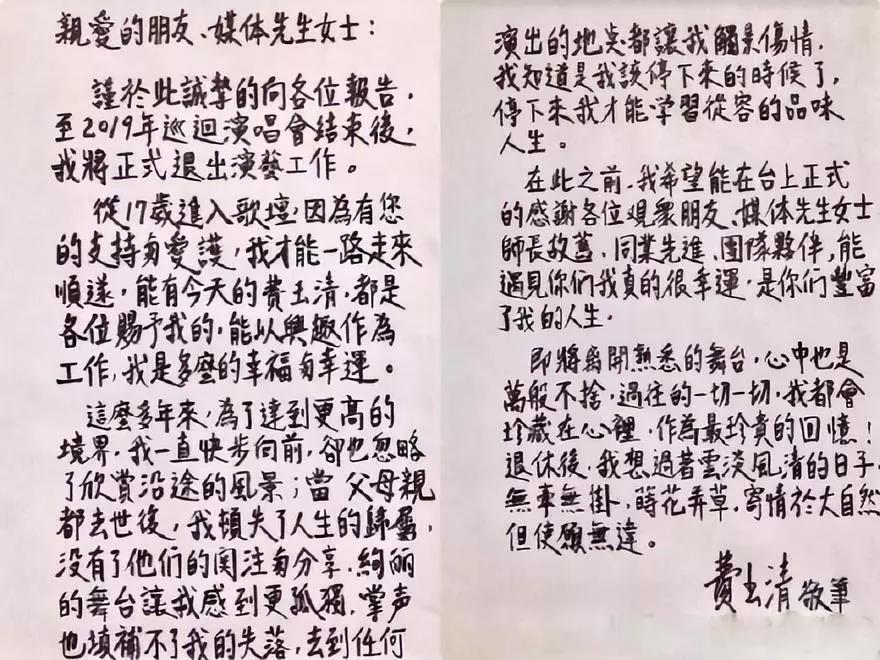 親愛的朋友、媒体先生女士：
謹於此誠摯的向各位報告，
至2019年巡迴演唱會結束後，
我將正式退出演藝工作。
從17歲進入歌壇，因為有您
的支持与愛護，我才能一路走來
順遂，能有今天的費玉清，都是
各位賜予我的，能以興趣作為
工作，我是多麼的幸福与幸運。
這麼多年來，為了達到更高的
境界，我一直快步向前，卻也忽略
了欣賞沿途的風景；當父母親
都去世後，我頓失了人生的歸屬，
没有了他們的関注与分享，絢丽
的舞台讓我感到更孤獨，掌声
也填補不了我的失落，去到任何
演出的地點都讓我觸景傷情，
我知道是我該停下來的時候了，
停下來我才能学習從容的品味
人生。
在此之前，我希望能在台上正式
的感謝各位觀眾朋友、媒体先生女士
師長故舊、同業先進、團隊夥伴，能
遇見你们我真的很幸運，是你们豐富
了我的人生。
即將离開熟悉的舞台，心中也是
萬般不捨，過往的一切一切，我都會
珍藏在心裡，作為最珍貴的回憶！
退休後，我想過著雲淡風清的日子，
無牽無掛，蒔花弄草，寄情於大自然
但使願無違。
費玉清 敬筆